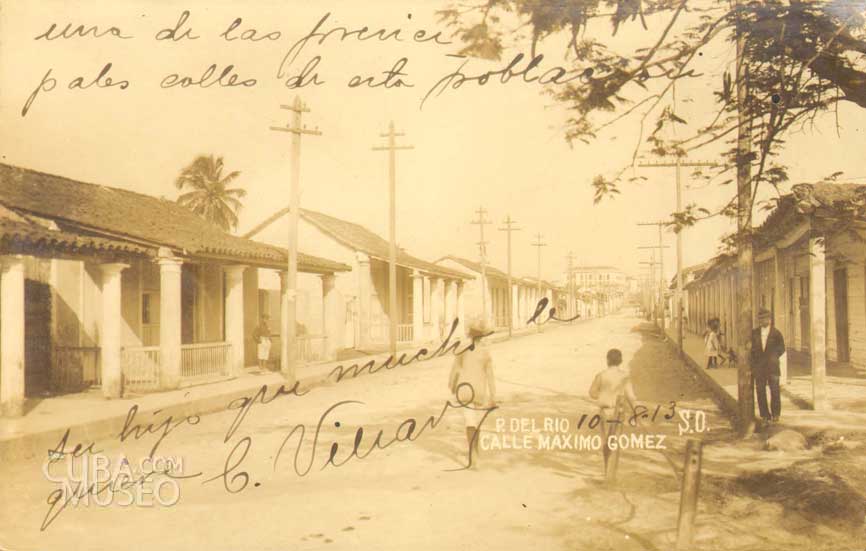 una de las princi
pales calles de esta población
su hijo que mucho le
quiere C. Villave
P. DEL RIO 10-8-13 S.O.
CALLE MAXIMO GOMEZ
CUBA.COM
MUSEO